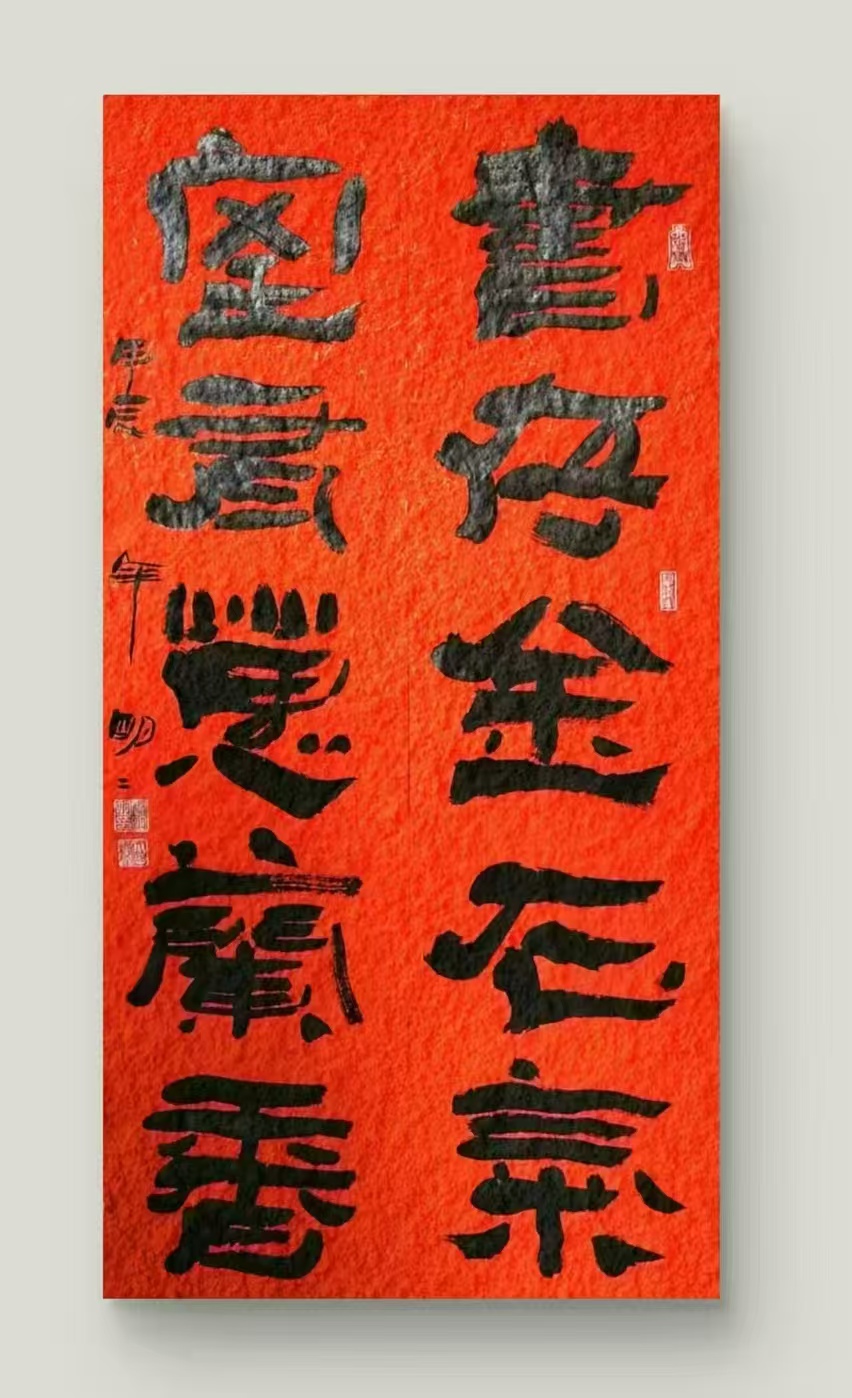 書存金石氣
室有蕙蘭香
甲辰年明